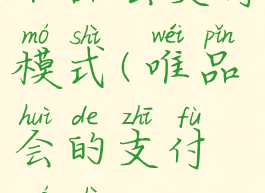 mó shì wéi pǐn
模式(唯品
huì de zhī fù
会的支付